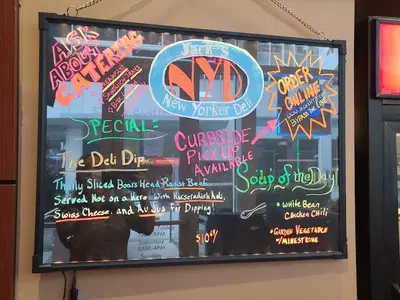 ASK
ABOUT
CATERING
Jack's
NYD
New Yorker Deli
ORDER
ONLINE
SPECIAL:
CURBSIDE
PICK UP
AVAILABLE
The Deli Dip
Thinly Sliced Boars Head Roast Beef
Served Hot on a Hero With Horseradish Aoli,
Swiss Cheese, and Au Jus for Dipping!
Soup of the Day
White Bean
Chicken Chili
Garden Vegetable
w/ MINESTRONE